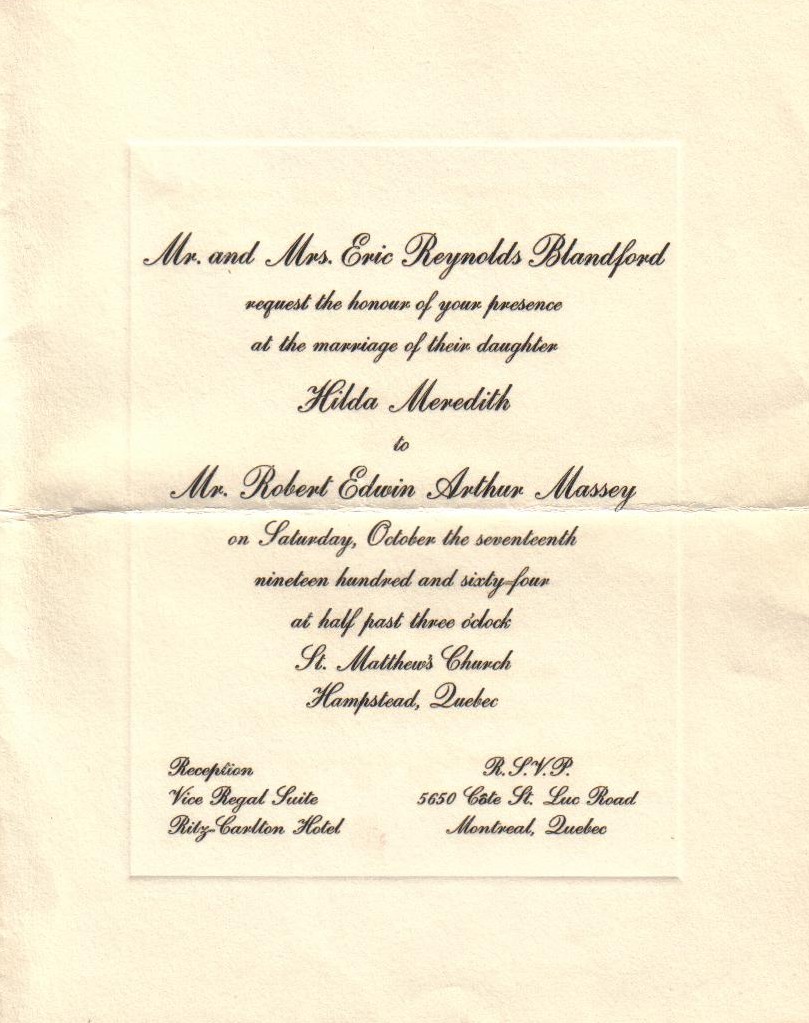 Mr. and Mrs. Eric Reynolds Blandford
request the honour of your presence
at the marriage of their daughter
Hilda Meredith
to
Mr. Robert Edwin Arthur Massey
on Saturday, October the seventeenth
nineteen hundred and sixty-four
at half past three o'clock
St. Matthew's Church
Hampstead, Quebec
Reception
Vice Regal Suite
Ritz-Carlton Hotel
R.S.V.P.
5650 Côte St. Luc Road
Montreal, Quebec